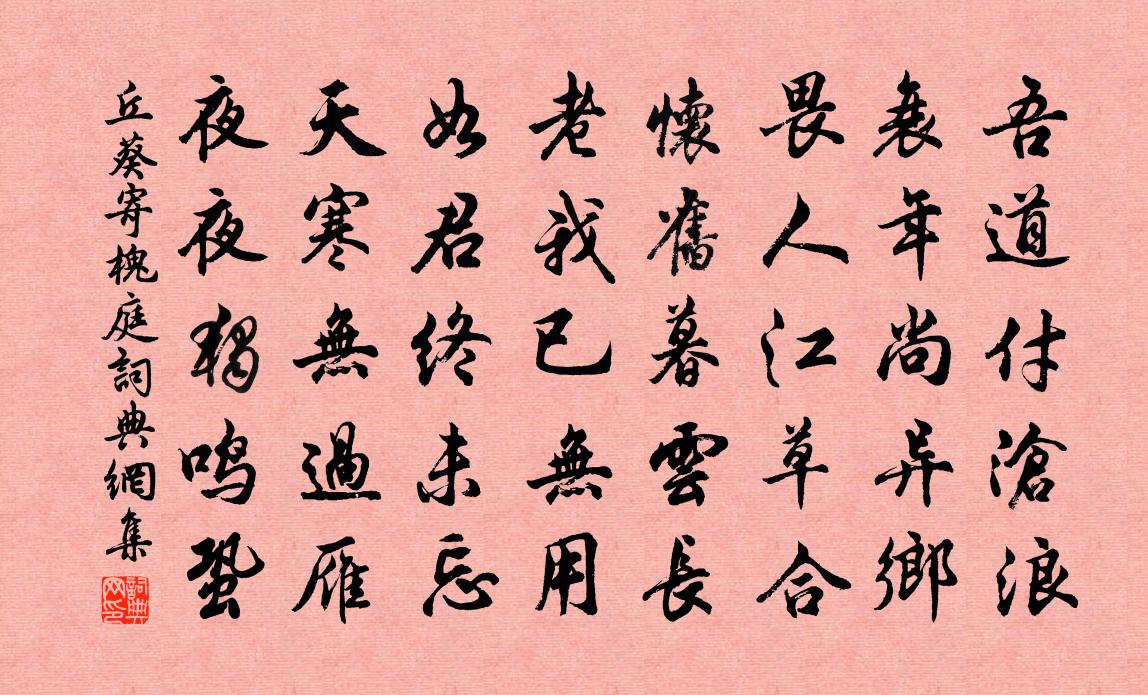 吾道付滄浪
衰年尚异鄉
畏人江草合
懷舊暮雲長
老我已無用
如君终未忘
天寒無過雁
夜夜獨鳴蛩
丘葵寄槐庭詞典網集
詞典网印